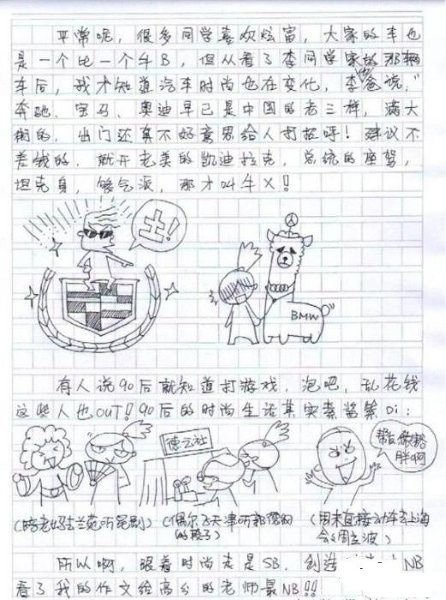 平常呢，很多同学喜欢炫富，大家的车也
是一个比一个牛B，但从看了李同学家的那辆
车后，我才知道汽车时尚也在变化，李爸说，
奔驰、宝马、奥迪早已是中国的老三样，满大
街的，出门还真不好意思给人打招呼！建议不
差钱的，就开老美的凯迪拉克，总统的座驾，
坦克身，够气派，那才叫牛X！！
土！
BMW
有人说90后就知道打游戏，泡吧，乱花钱
这些人也OUT！90后的时尚生活其实蛮
德云社
帮
胖啊
(陪老妈去兰苑听昆剧)
(偶尔飞天津听郭德纲
的段子)
(周末直接动车去上海
会周立波)
所以啊，跟着时尚走是SB，创造
NB
看了我的作文给高分的老师最NB！！